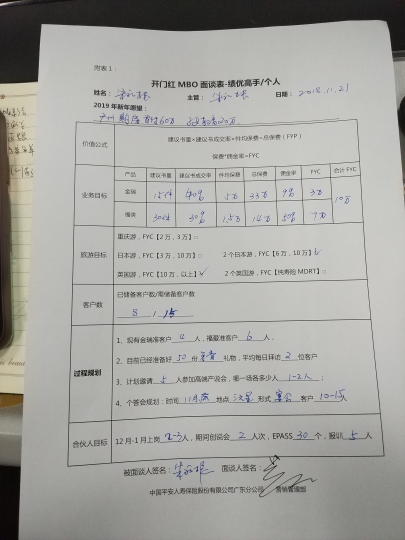 附表 1：
开门红 MBO 面谈表-绩优高手/个人
姓名： 主管： 日期：2018.11.21
2019 年新年愿望：
价值公式
建议书量×建议书成交率×件均保费=总保费（FYP）
保费*佣金率=FYC
业务目标
产品 建议书量 建议书成交率 件均保额 总保费 佣金率 FYC 合计 FYC
金瑞 15件 40% 5万 33万 9% 3万 10万
福类 30件 30% 1.5万 14万 50% 7万
旅游目标
重庆游，FYC【2 万，3 万】□
日本游，FYC【3 万，10 万】□ 2 个日本游，FYC【6 万，10 万】√
英国游，FYC【10 万，以上】√ 2 个英国游，FYC【纯寿险 MDRT】□
客户数
已储备客户数/需储备客户数
8 / 15
过程规划
1、现有金瑞准客户 4 人，福类准客户 6 人，
2、目前已经准备好 50 份 礼物，平均每日拜访 2 位客户
3、计划邀请 5 人参加高端产说会，哪一场各多少人 1-2人；
4、个答会规划：时间 11月底 地点 形式 客户 10-15人
合伙人目标
12 月-1 月上岗 2-3 人，期间创说会 2 人次，EPASS 30 个，报训 5 人
被面谈人签名： 面谈人签名：
中国平安人寿保险股份有限公司广东分公司 营销管理部